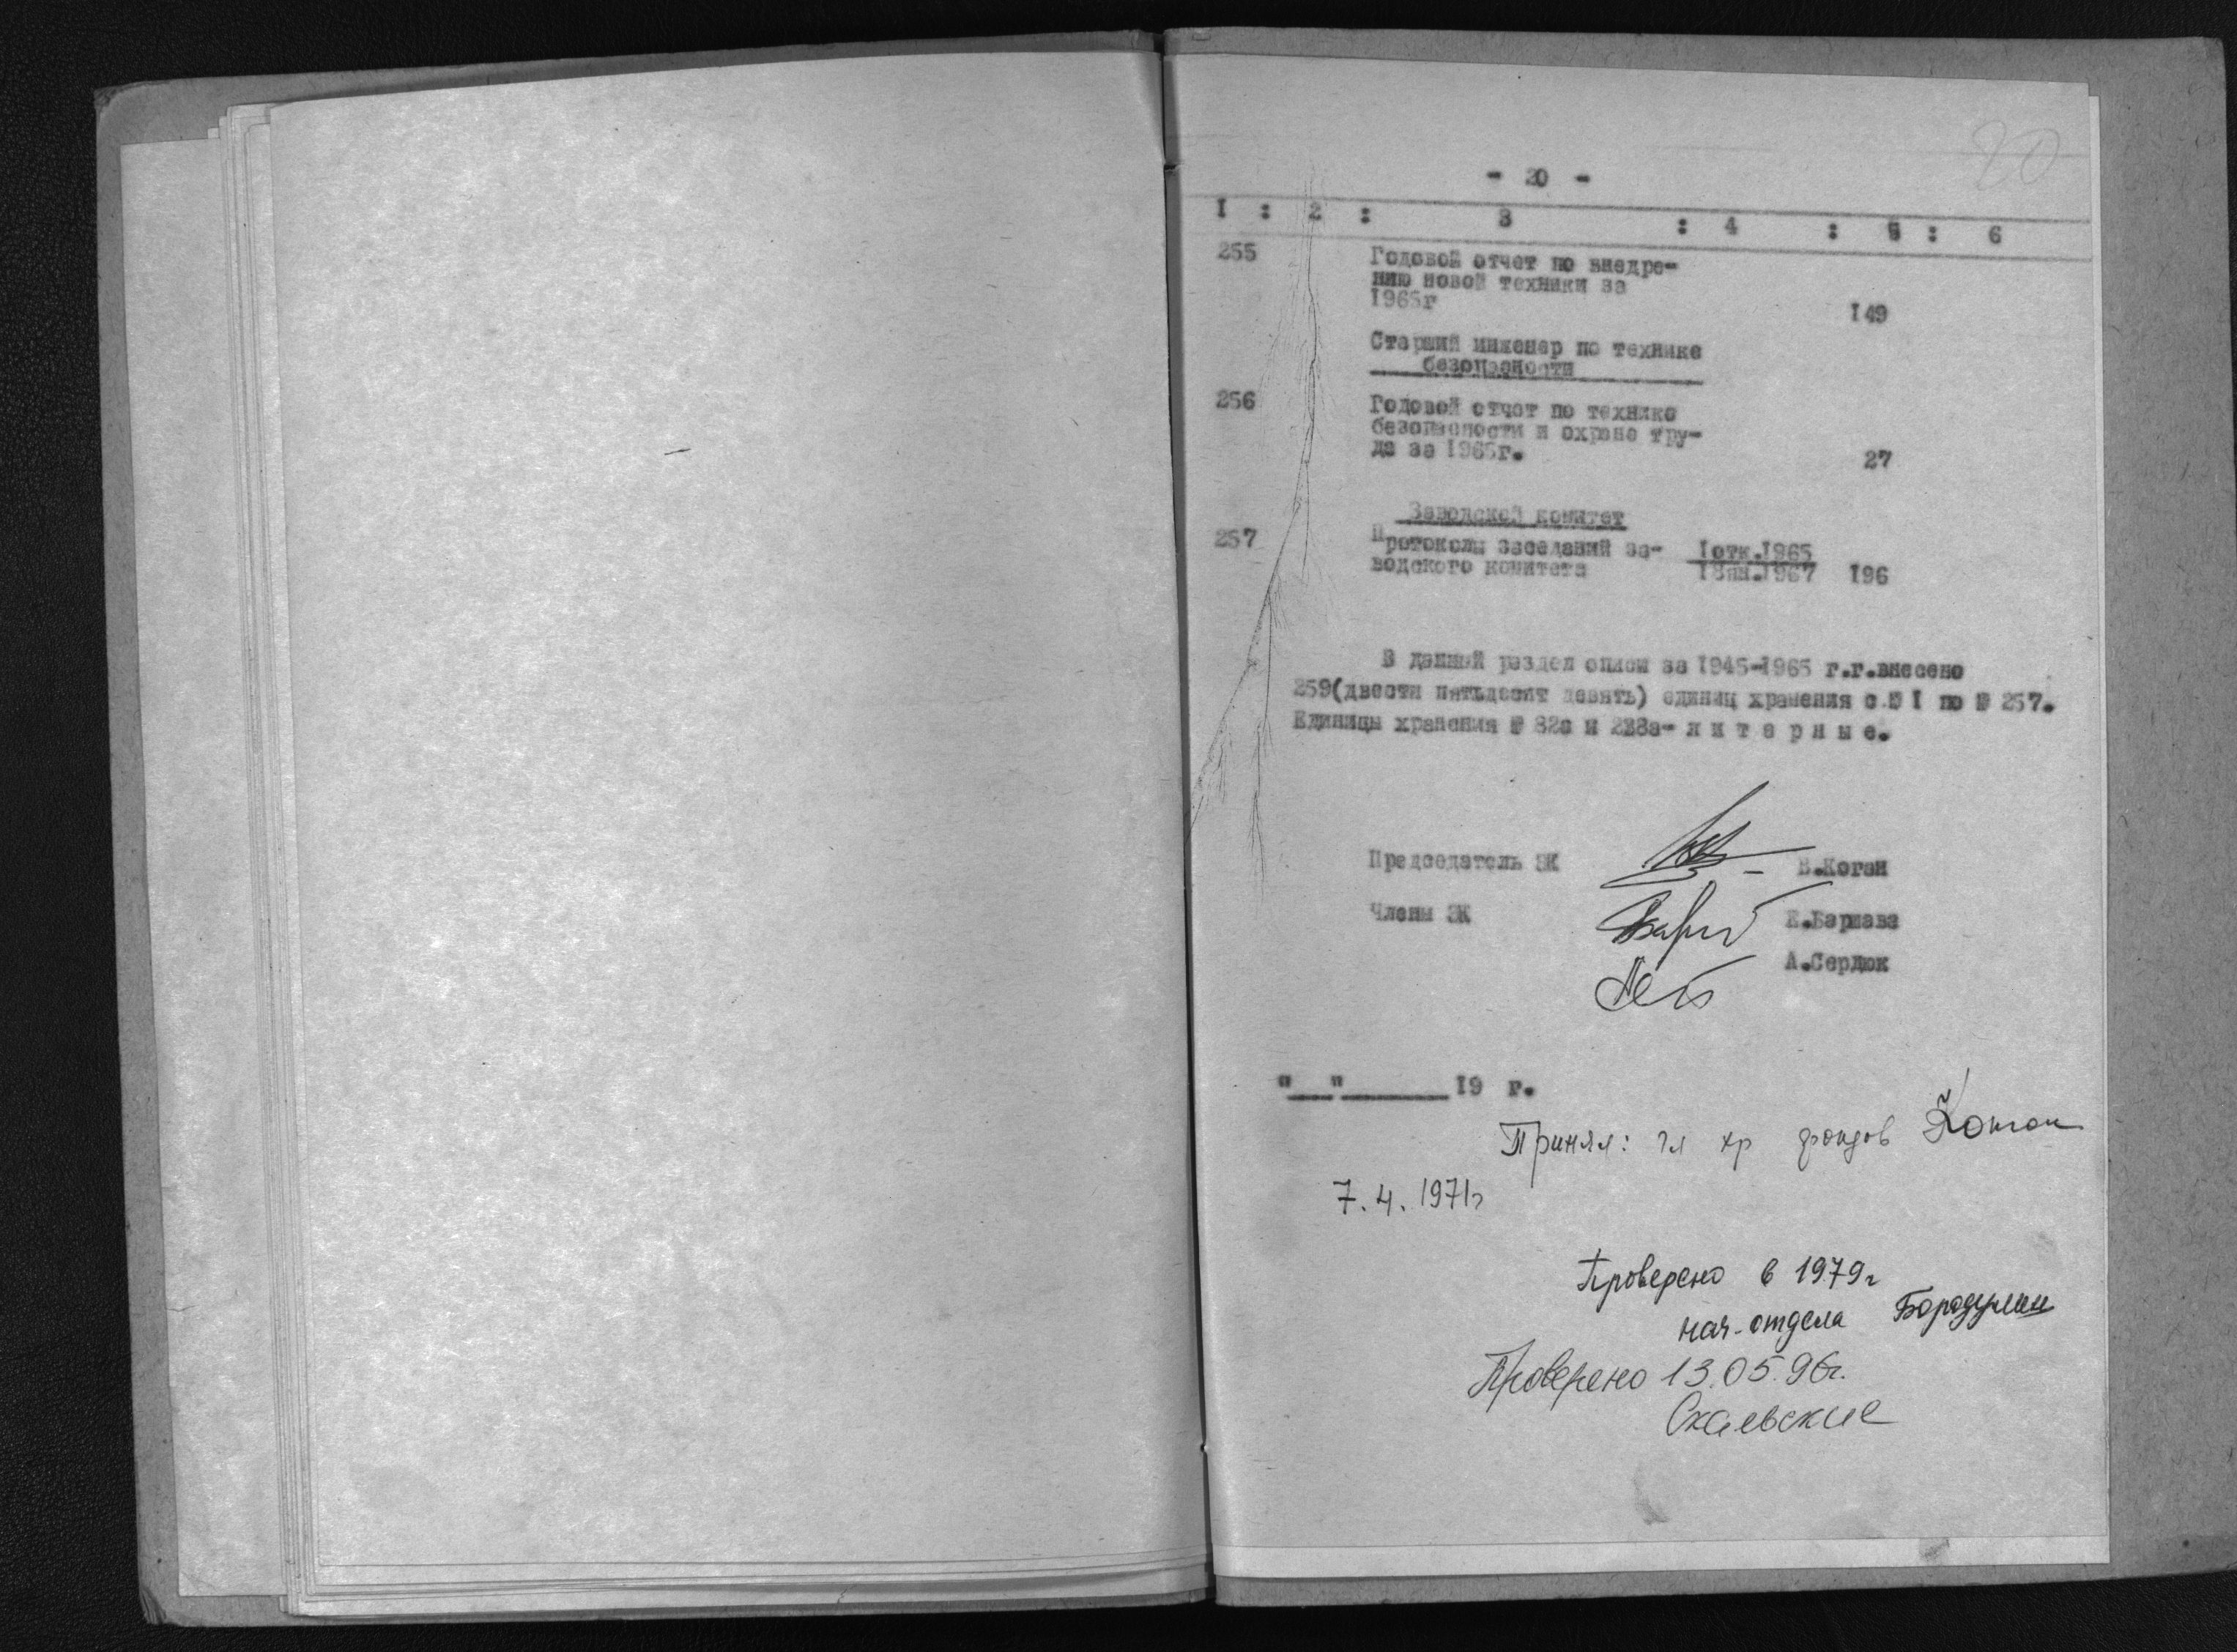 20
- 20 -
I : 2 : 3 : 4 : 5 : 6
255 Годовой отчет по внедре-
нию новой техники за
1965г 149
Старший инженер по технике
безопасности
256 Годовой отчет по технике
безопасности и охране тру-
да за 1965г. 27
Заводской комитет
257 Протоколы заседаний за- 1отк.1965
водского комитета 18ян.1967 196
В данный раздел описи за 1945-1965 г.г.внесено
259(двести пятьдесят девять) единиц хранения с № I по № 257.
Единицы хранения № 82а и 228а- л и т е р н ы е.
Председатель ЭК В.Коган
Члены ЭК Е.Баршава
А.Сердюк
"__"______19 г.
Принял: гл хр фондов
7.4.1971г
Проверено в 1979г
нач-отдела
Проверено 13.05.96г.